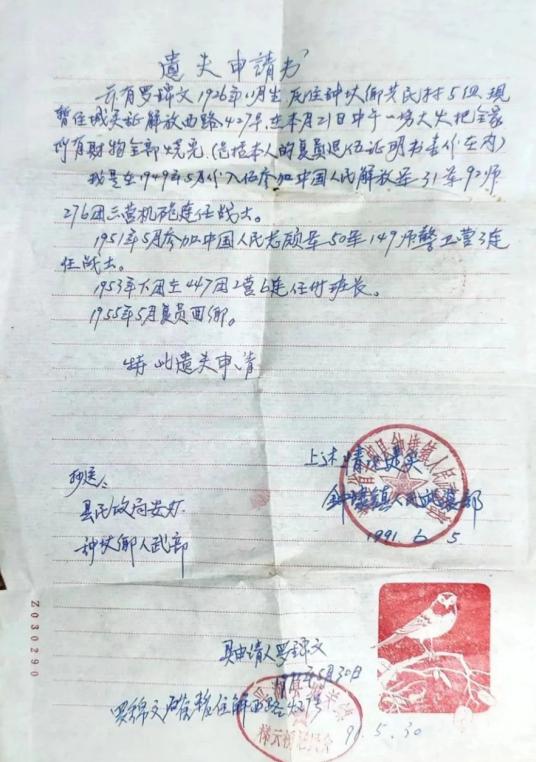 遗失申請书
兹有罗錦文1926年11月生 原住钟垱鄉共民村5组 现
暂住城关证解放西路427号 在本月21日中午一場大火把全家
所有财物全部烧光。(包括本人的复员退伍证明书壹份在内)
我是在1949年5月份入伍参加中国人民解放军31军92师
276团三营机砲連任战士。
1951年5月参加中国人民志願军50军149师警卫营3连
任战士。
1953年下团在447团2营6连任付班长。
1955年5月复员回鄉。
特此遗失申请
上述情况属实
钟垱镇人民武装部
1991.6.5
抄送:
县民政局安办
钟垱鄉人武部
Z030290
具申请人罗錦文
5月30日
罗錦文 暂住解西路427号
91.5.30